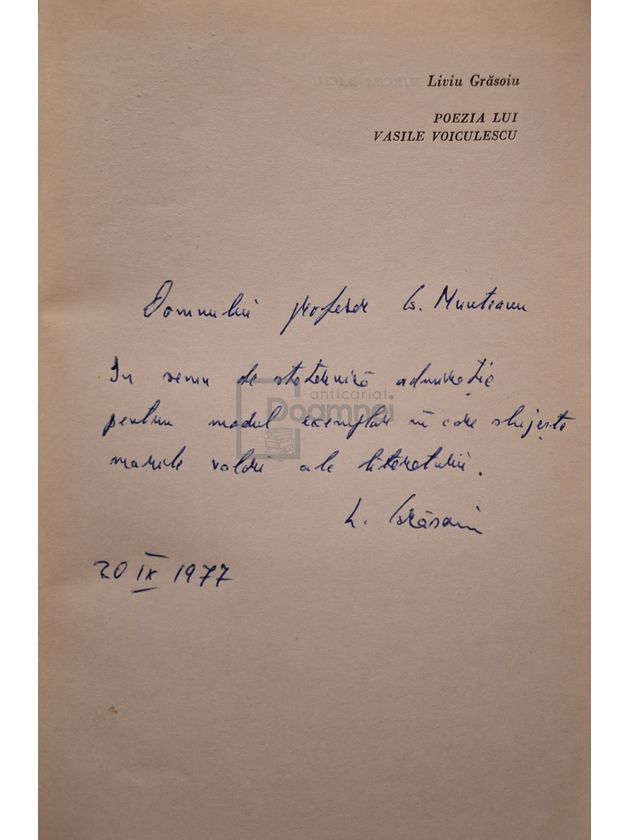 Liviu Grăsoiu
POEZIA LUI
VASILE VOICULESCU
Domnului profesor G. Munteanu
În semn de statornică admirație
pentru modul exemplar în care slujește
marile valori ale literaturii.
L. Grăsoiu
20 IX 1977
anticariat
Doamnei